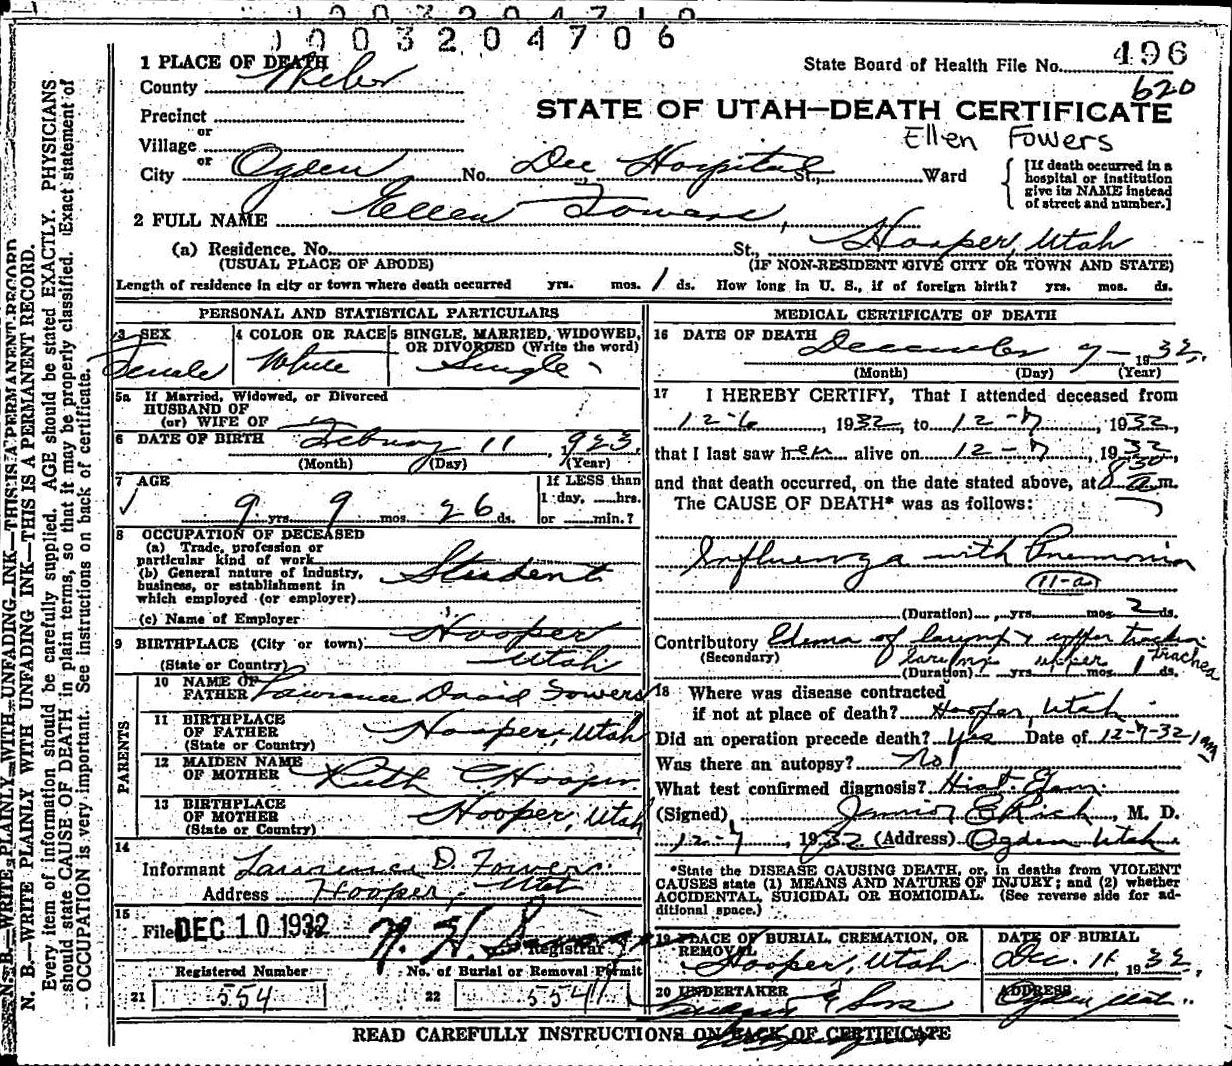 1003204706
496
620
State Board of Health File No.
STATE OF UTAH—DEATH CERTIFICATE
Ellen Fowers
1 PLACE OF DEATH
County Weber
Precinct
or
Village
or
City Ogden No. Dee Hospital St., Ward
[If death occurred in a hospital or institution give its NAME instead of street and number.]
2 FULL NAME Ellen Fowers,
(a) Residence. No. St., Hooper, Utah
(USUAL PLACE OF ABODE) (IF NON-RESIDENT GIVE CITY OR TOWN AND STATE)
Length of residence in city or town where death occurred yrs. mos. 1 ds. How long in U. S., if of foreign birth? yrs. mos. ds.
PERSONAL AND STATISTICAL PARTICULARS
3 SEX Female
4 COLOR OR RACE White
5 SINGLE, MARRIED, WIDOWED, OR DIVORCED (Write the word) Single
5a If Married, Widowed, or Divorced
HUSBAND OF
(or) WIFE OF
6 DATE OF BIRTH February 11, 1923
(Month) (Day) (Year)
7 AGE
9 yrs. 9 mos. 26 ds.
If LESS than
1 day, ......hrs.
or ......min.?
8 OCCUPATION OF DECEASED
(a) Trade, profession or
particular kind of work Student
(b) General nature of industry,
business, or establishment in
which employed (or employer)
(c) Name of Employer
9 BIRTHPLACE (City or town) Hooper
(State or Country) Utah
PARENTS
10 NAME OF FATHER Lawrence David Fowers
11 BIRTHPLACE OF FATHER Hooper, Utah
(State or Country)
12 MAIDEN NAME OF MOTHER Ruth C Hooper
13 BIRTHPLACE OF MOTHER Hooper, Utah
(State or Country)
14
Informant Lawrence D. Fowers
Address Hooper, Utah
15
Filed DEC 10 1932
Registrar
Registered Number
21 554
No. of Burial or Removal Permit
22 554
MEDICAL CERTIFICATE OF DEATH
16 DATE OF DEATH December 7- 1932
(Month) (Day) (Year)
17 I HEREBY CERTIFY, That I attended deceased from
12-6, 1932, to 12-7, 1932,
that I last saw her alive on 12-7, 1932,
and that death occurred, on the date stated above, at 8 30 a.m.
The CAUSE OF DEATH* was as follows:
Influenza with Pneumonia
(11-a)
(Duration) yrs. mos. 2 ds.
Contributory Edema of larynx & upper trachea
(Secondary) larynx upper trachea
(Duration) yrs. mos. 1 ds.
18 Where was disease contracted
if not at place of death? Hooper, Utah
Did an operation precede death? Yes Date of 12-7-32 1 am
Was there an autopsy? No
What test confirmed diagnosis? Hist. Exam.
(Signed) Junior E Rich, M. D.
12-7, 1932 (Address) Ogden Utah
*State the DISEASE CAUSING DEATH, or, in deaths from VIOLENT
CAUSES state (1) MEANS AND NATURE OF INJURY; and (2) whether
ACCIDENTAL, SUICIDAL OR HOMICIDAL. (See reverse side for ad-
ditional space.)
19 PLACE OF BURIAL, CREMATION, OR REMOVAL
Hooper, Utah
DATE OF BURIAL
Dec. 11, 1932
20 UNDERTAKER
& Sons
ADDRESS
Ogden Utah
READ CAREFULLY INSTRUCTIONS ON BACK OF CERTIFICATE
N. B.—WRITE PLAINLY WITH UNFADING INK—THIS IS A PERMANENT RECORD
N. B.—WRITE PLAINLY WITH UNFADING INK—THIS IS A PERMANENT RECORD.
Every item of information should be carefully supplied. AGE should be stated EXACTLY. PHYSICIANS
should state CAUSE OF DEATH in plain terms, so that it may be properly classified. Exact statement of
OCCUPATION is very important. See instructions on back of certificate.